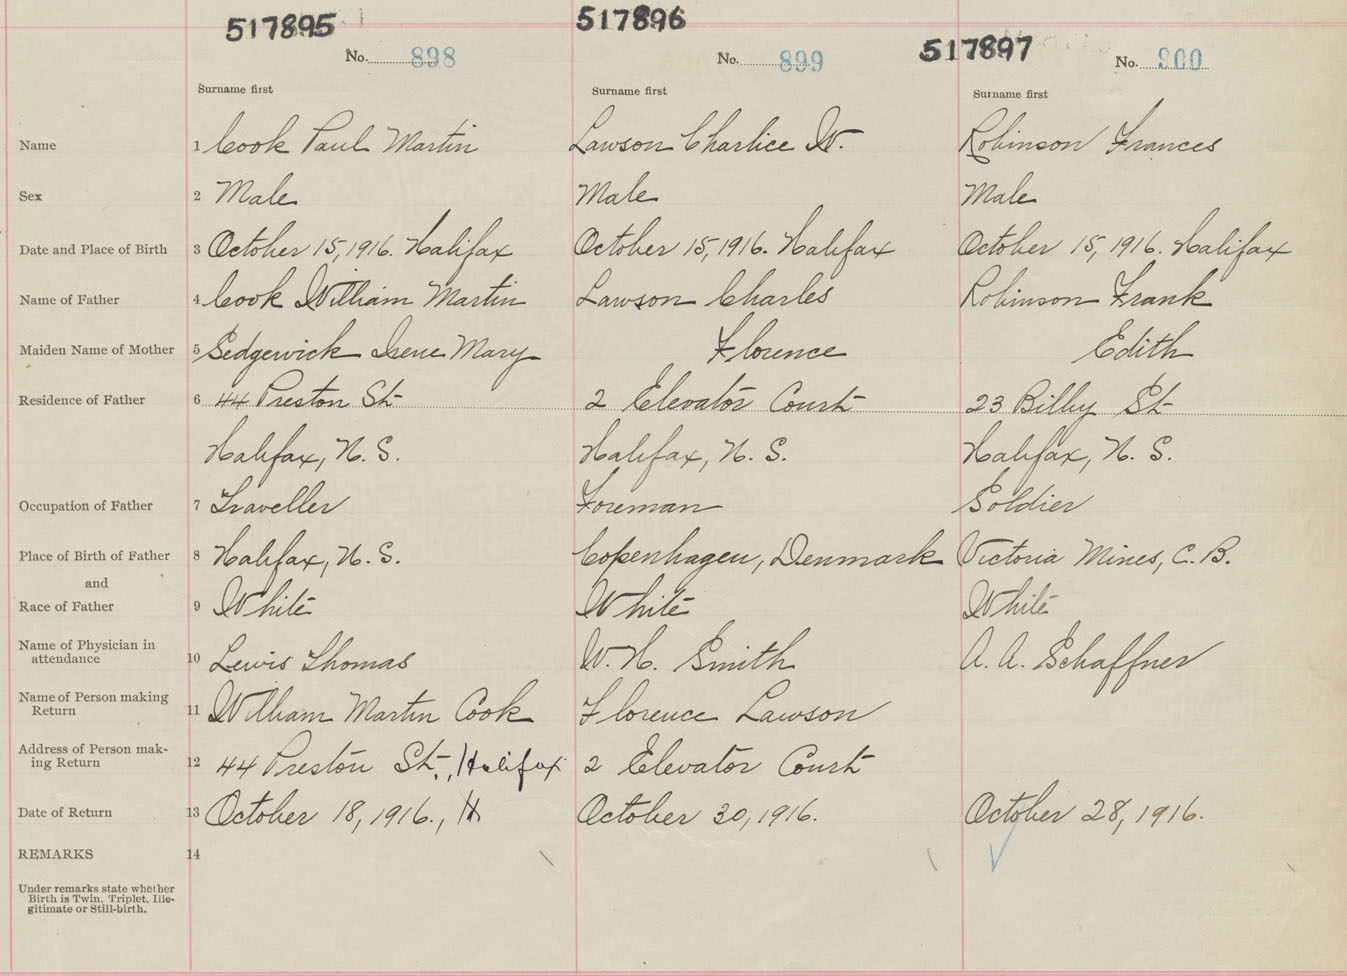 517895 517896 517897
No. 898 No. 899 No. 900
Surname first Surname first Surname first
Name 1 Cook Paul Martin Lawson Charlice W. Robinson Frances
Sex 2 Male Male Male
Date and Place of Birth 3 October 15, 1916. Halifax October 15, 1916. Halifax October 15, 1916. Halifax
Name of Father 4 Cook William Martin Lawson Charles Robinson Frank
Maiden Name of Mother 5 Sedgewick Irene Mary Florence Edith
Residence of Father 6 44 Preston St 2 Elevator Court 23 Bilby St
Halifax, N. S. Halifax, N. S. Halifax, N. S.
Occupation of Father 7 Traveller Foreman Soldier
Place of Birth of Father 8 Halifax, N. S. Copenhagen, Denmark Victoria Mines, C. B.
and
Race of Father 9 White White White
Name of Physician in
attendance 10 Lewis Thomas W. H. Smith A. A. Schaffner
Name of Person making
Return 11 William Martin Cook Florence Lawson
Address of Person mak-
ing Return 12 44 Preston St., Halifax 2 Elevator Court
Date of Return 13 October 18, 1916., H October 30, 1916. October 28, 1916.
REMARKS 14
Under remarks state whether
Birth is Twin, Triplet, Ille-
gitimate or Still-birth.